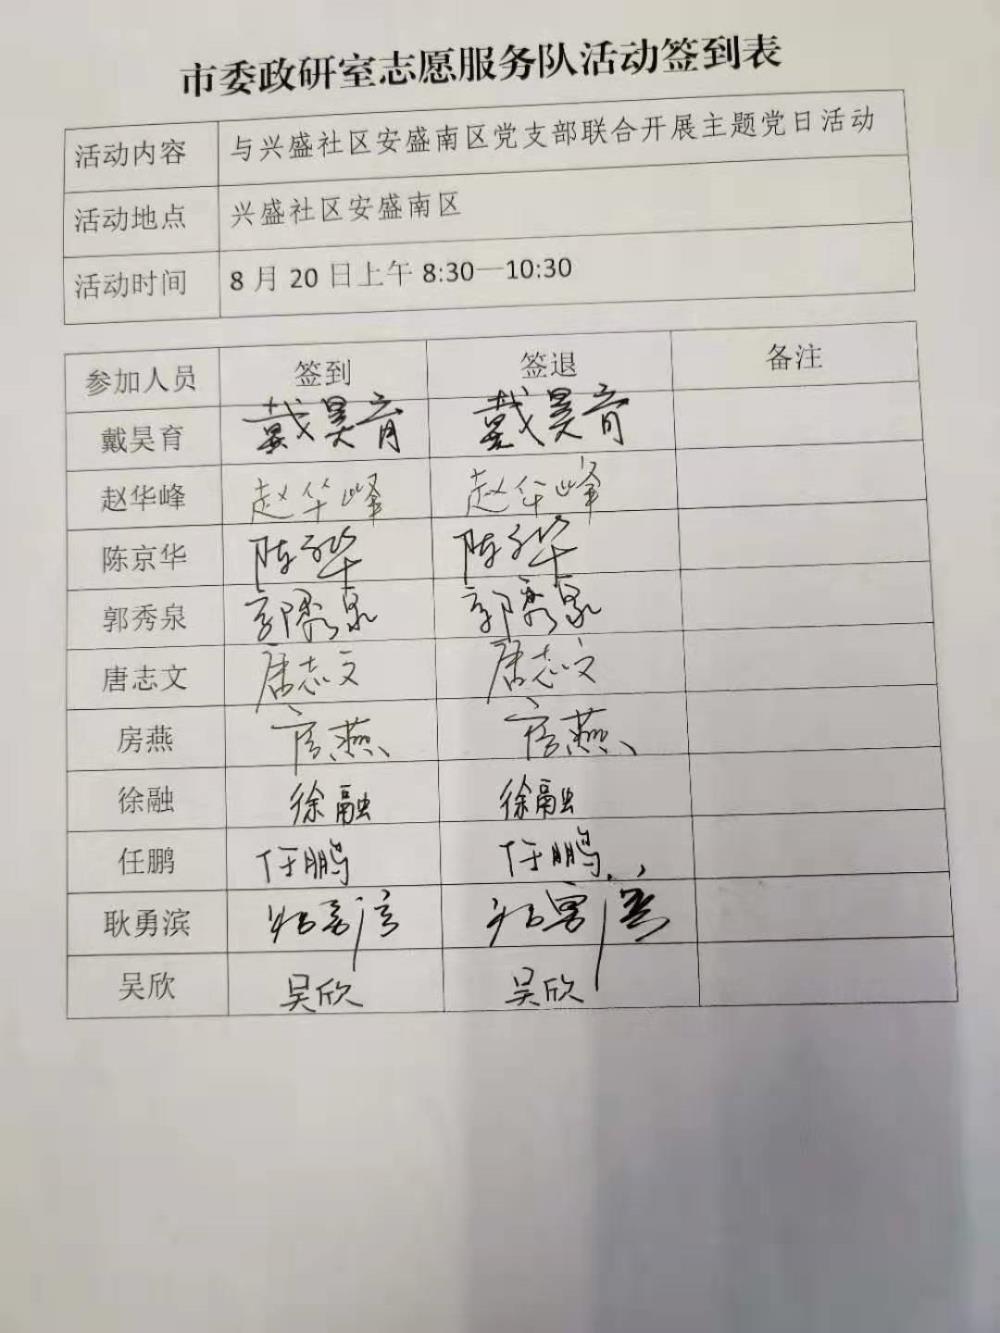 市委政研室志愿服务队活动签到表
活动内容 与兴盛社区安盛南区党支部联合开展主题党日活动
活动地点 兴盛社区安盛南区
活动时间 8月20日上午8:30—10:30
参加人员 签到 签退 备注
戴昊育 戴昊育 戴昊育
赵华峰 赵华峰 赵华峰
陈京华 陈京华 陈京华
郭秀泉 郭秀泉 郭秀泉
唐志文 唐志文 唐志文
房燕 房燕 房燕
徐融 徐融 徐融
任鹏 任鹏 任鹏
耿勇滨 耿勇滨 耿勇滨
吴欣 吴欣 吴欣